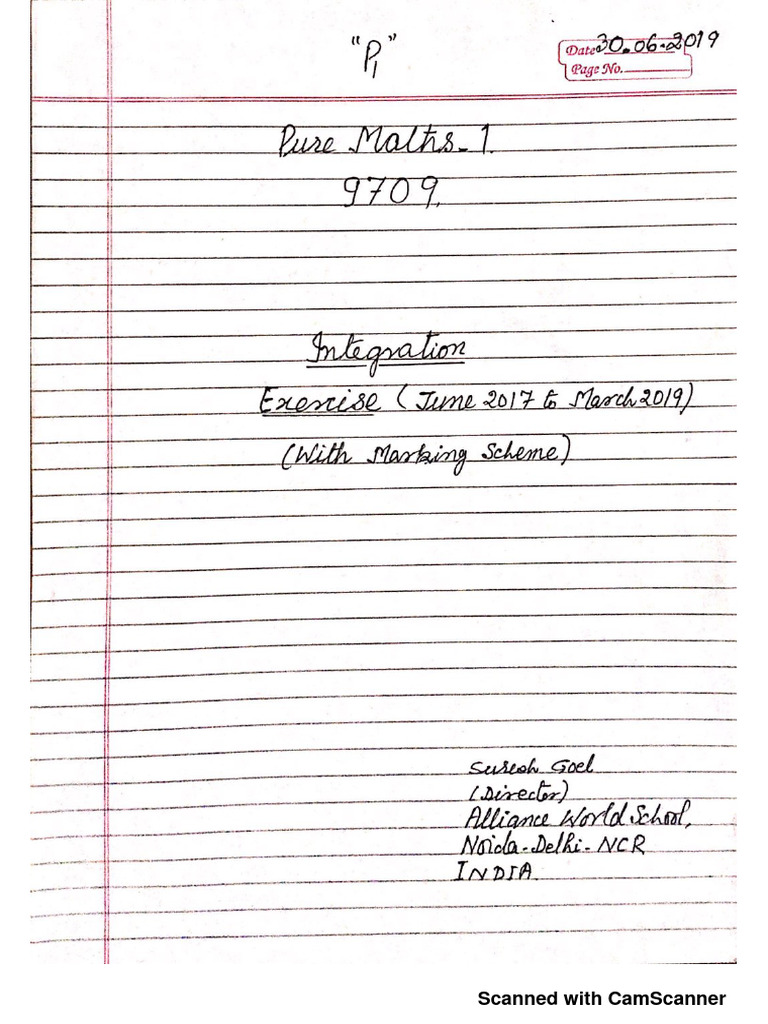 "P1"
Date 30.06.2019
Page No.
Pure Maths-1.
9709.
Integration
Exercise (June 2017 to March 2019)
(With Marking Scheme)
Suresh Goel
(Director)
Alliance World School,
Noida-Delhi-NCR
INDIA.
Scanned with CamScanner